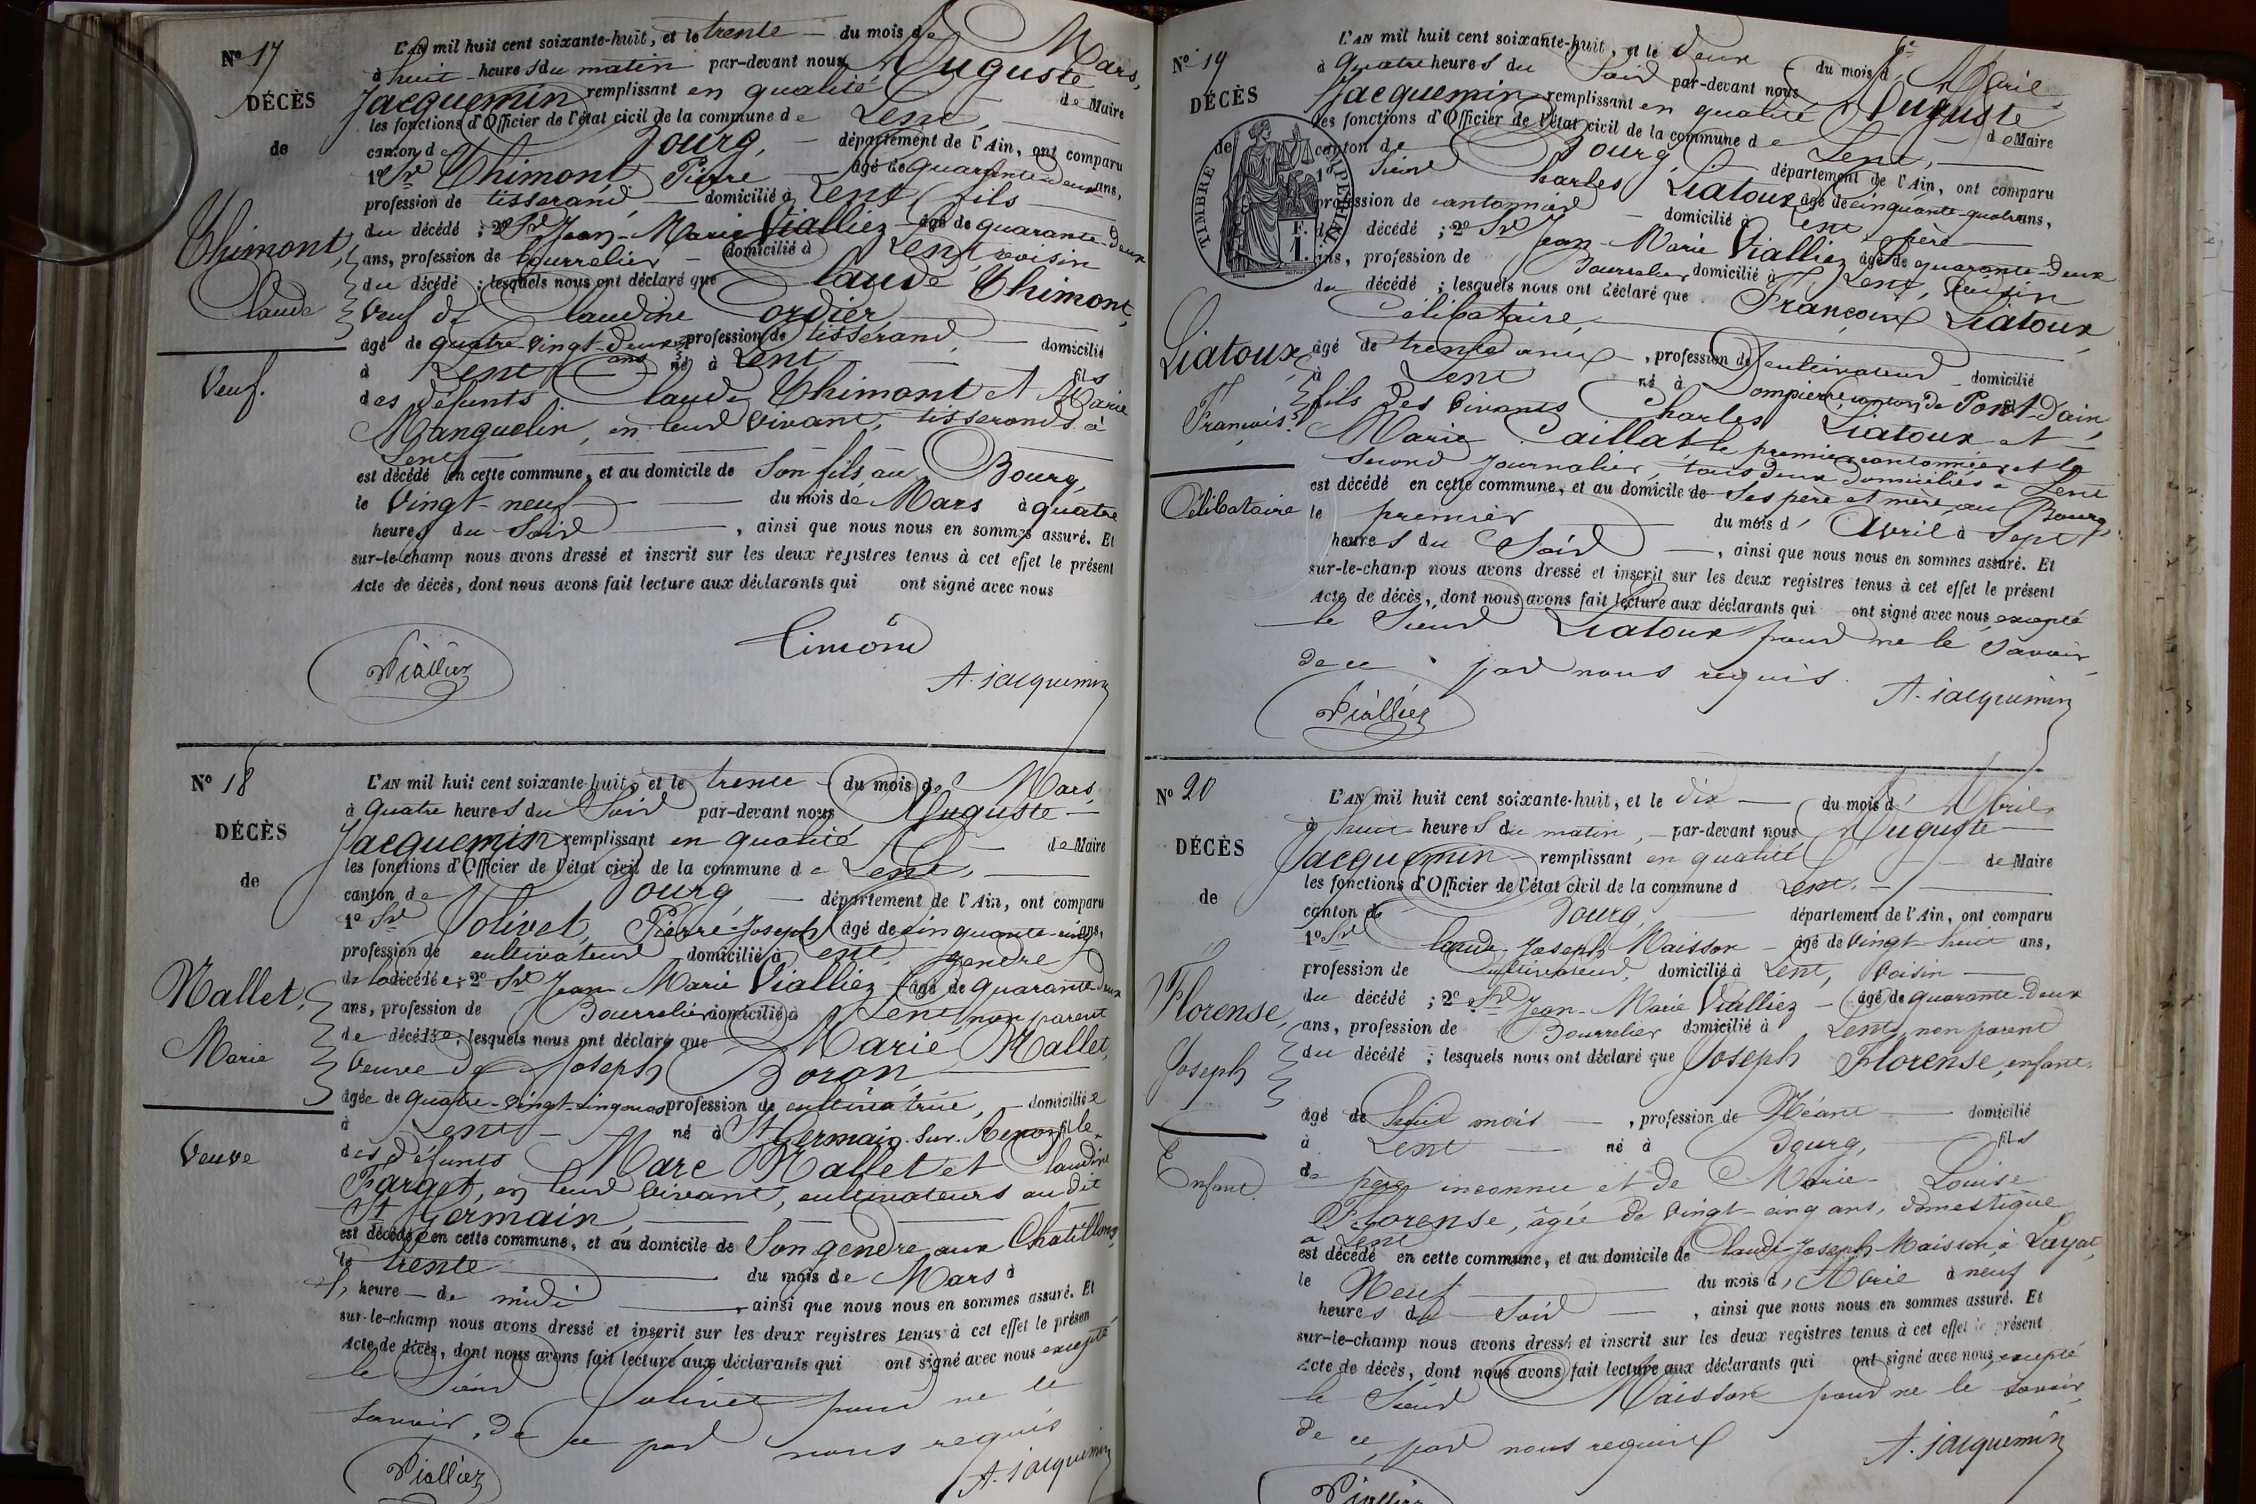 N° 17
DÉCÈS
de
Thimont,
Claude
Veuf.
L'AN mil huit cent soixante-huit, et le trente du mois de Mars,
à huit heures du matin par-devant nous Auguste
Jacquemin remplissant en qualité de Maire
les fonctions d'Officier de l'état civil de la commune de Lent,
canton de Bourg, département de l'Ain, ont comparu
1° Sr Thimont, Pierre âgé de quarante-deux ans,
profession de tisserand, domicilié à Lent fils
du décédé ; 2° Sr Jean-Marie Vialliez âgé de quarante-deux
ans, profession de bourrelier domicilié à Lent, voisin
du décédé ; lesquels nous ont déclaré que Claude Thimont,
Veuf de Claudine Cordier
âgé de quatre-vingt-deux ans, profession de tisserand, domicilié
à Lent né à Lent fils
des défunts Claude Thimont et Marie
Manguelin, en leur vivant, tisserands à
Lent
est décédé en cette commune, et au domicile de Son fils au Bourg,
le Vingt-neuf du mois de Mars à quatre
heures du Soir, ainsi que nous nous en sommes assuré. Et
sur-le-champ nous avons dressé et inscrit sur les deux registres tenus à cet effet le présent
Acte de décès, dont nous avons fait lecture aux déclarants qui ont signé avec nous
Vialliez
A. jacquemin
N° 18
DÉCÈS
de
Mallet,
Marie
Veuve
L'AN mil huit cent soixante-huit, et le trente du mois de Mars,
à quatre heures du Soir par-devant nous Auguste
Jacquemin remplissant en qualité de Maire
les fonctions d'Officier de l'état civil de la commune de Lent,
canton de Bourg département de l'Ain, ont comparu
1° Sr Jolivet, Pierre-Joseph âgé de cinquante-cinq ans,
profession de cultivateur domicilié à Lent gendre
de la décédée ; 2° Sr Jean Marie Vialliez âgé de quarante-deux
ans, profession de Bourrelier domicilié à Lent non parent
de décédée ; lesquels nous ont déclaré que Marie Mallet,
Veuve de Joseph Boron
âgée de quatre-vingt-cinq ans profession de cultivatrice, domiciliée
à Lent né à St Germain-sur-Renon fille
des défunts Marc Mallet et Claudine
Farget, en leur vivant, cultivateurs au dit
St Germain,
est décédée en cette commune, et au domicile de Son gendre aux Chatillons,
le trente du mois de Mars à
heure de midi, ainsi que nous nous en sommes assuré. Et
sur-le-champ nous avons dressé et inscrit sur les deux registres tenus à cet effet le présen
Acte de décès, dont nous avons fait lecture aux déclarants qui ont signé avec nous excepté
le Sieur Jolivet pour ne le
savoir, de ce par nous requis
Vialliez
A. jacquemin
N° 19
DÉCÈS
de
TIMBRE IMPÉRIAL
F.
1.
Liatoux,
François
Célibataire
L'AN mil huit cent soixante-huit, et le deux du mois d'Avril
à quatre heures du Soir par-devant nous Auguste
Jacquemin remplissant en qualité de Maire
les fonctions d'Officier de l'état civil de la commune de Lent,
canton de Bourg, département de l'Ain, ont comparu
1° Sieur Charles Liatoux âgé de cinquante-quatre ans,
profession de cantonnier domicilié à Lent père
du décédé ; 2° Sr Jean-Marie Vialliez âgé de quarante-deux
ans, profession de Bourrelier domicilié à Lent, Voisin
du décédé ; lesquels nous ont déclaré que François Liatoux,
Célibataire,
âgé de trente ans, profession de cultivateur domicilié
à Lent né à Dompierre canton de Pont-d'ain,
fils des vivants Charles Liatoux et
Marie Caillat, le premier cantonnier et la
second journalier, tous deux domiciliés à Lent
est décédé en cette commune, et au domicile de Ses père et mère au Bourg,
le premier du mois d'Avril à Sept
heures du Soir, ainsi que nous nous en sommes assuré. Et
sur-le-champ nous avons dressé et inscrit sur les deux registres tenus à cet effet le présent
Acte de décès, dont nous avons fait lecture aux déclarants qui ont signé avec nous, excepté
le Sieur Liatoux pour ne le savoir,
de ce par nous requis.
Vialliez
A. jacquemin
N° 20
DÉCÈS
de
Florense,
Joseph
Enfant.
L'AN mil huit cent soixante-huit, et le dix du mois d'Avril,
à huit heures du matin, par-devant nous Auguste
Jacquemin remplissant en qualité de Maire
les fonctions d'Officier de l'état civil de la commune d Lent.
canton de Bourg, département de l'Ain, ont comparu
1° Sr Claude Joseph Maisson âgé de vingt-huit ans,
profession de Cultivateur, domicilié à Lent, Voisin
du décédé ; 2° Sr Jean-Marie Vialliez âgé de quarante-deux
ans, profession de Bourrelier domicilié à Lent, non parent
du décédé ; lesquels nous ont déclaré que Joseph Florense, enfant
âgé de huit mois, profession de Néant domicilié
à Lent né à Bourg, fils
de père inconnu et de Marie-Louise
Florense, âgée de vingt-cinq ans, domestique
à Lent
est décédé en cette commune, et au domicile de Claude Joseph Maisson, à Layat,
le Neuf du mois d'Avril à neuf
heures du Soir, ainsi que nous nous en sommes assuré. Et
sur-le-champ nous avons dressé et inscrit sur les deux registres tenus à cet effet le présent
Acte de décès, dont nous avons fait lecture aux déclarants qui ont signé avec nous, excepté
le Sieur Maisson pour ne le savoir,
de ce par nous requis
A. jacquemin
Vialliez